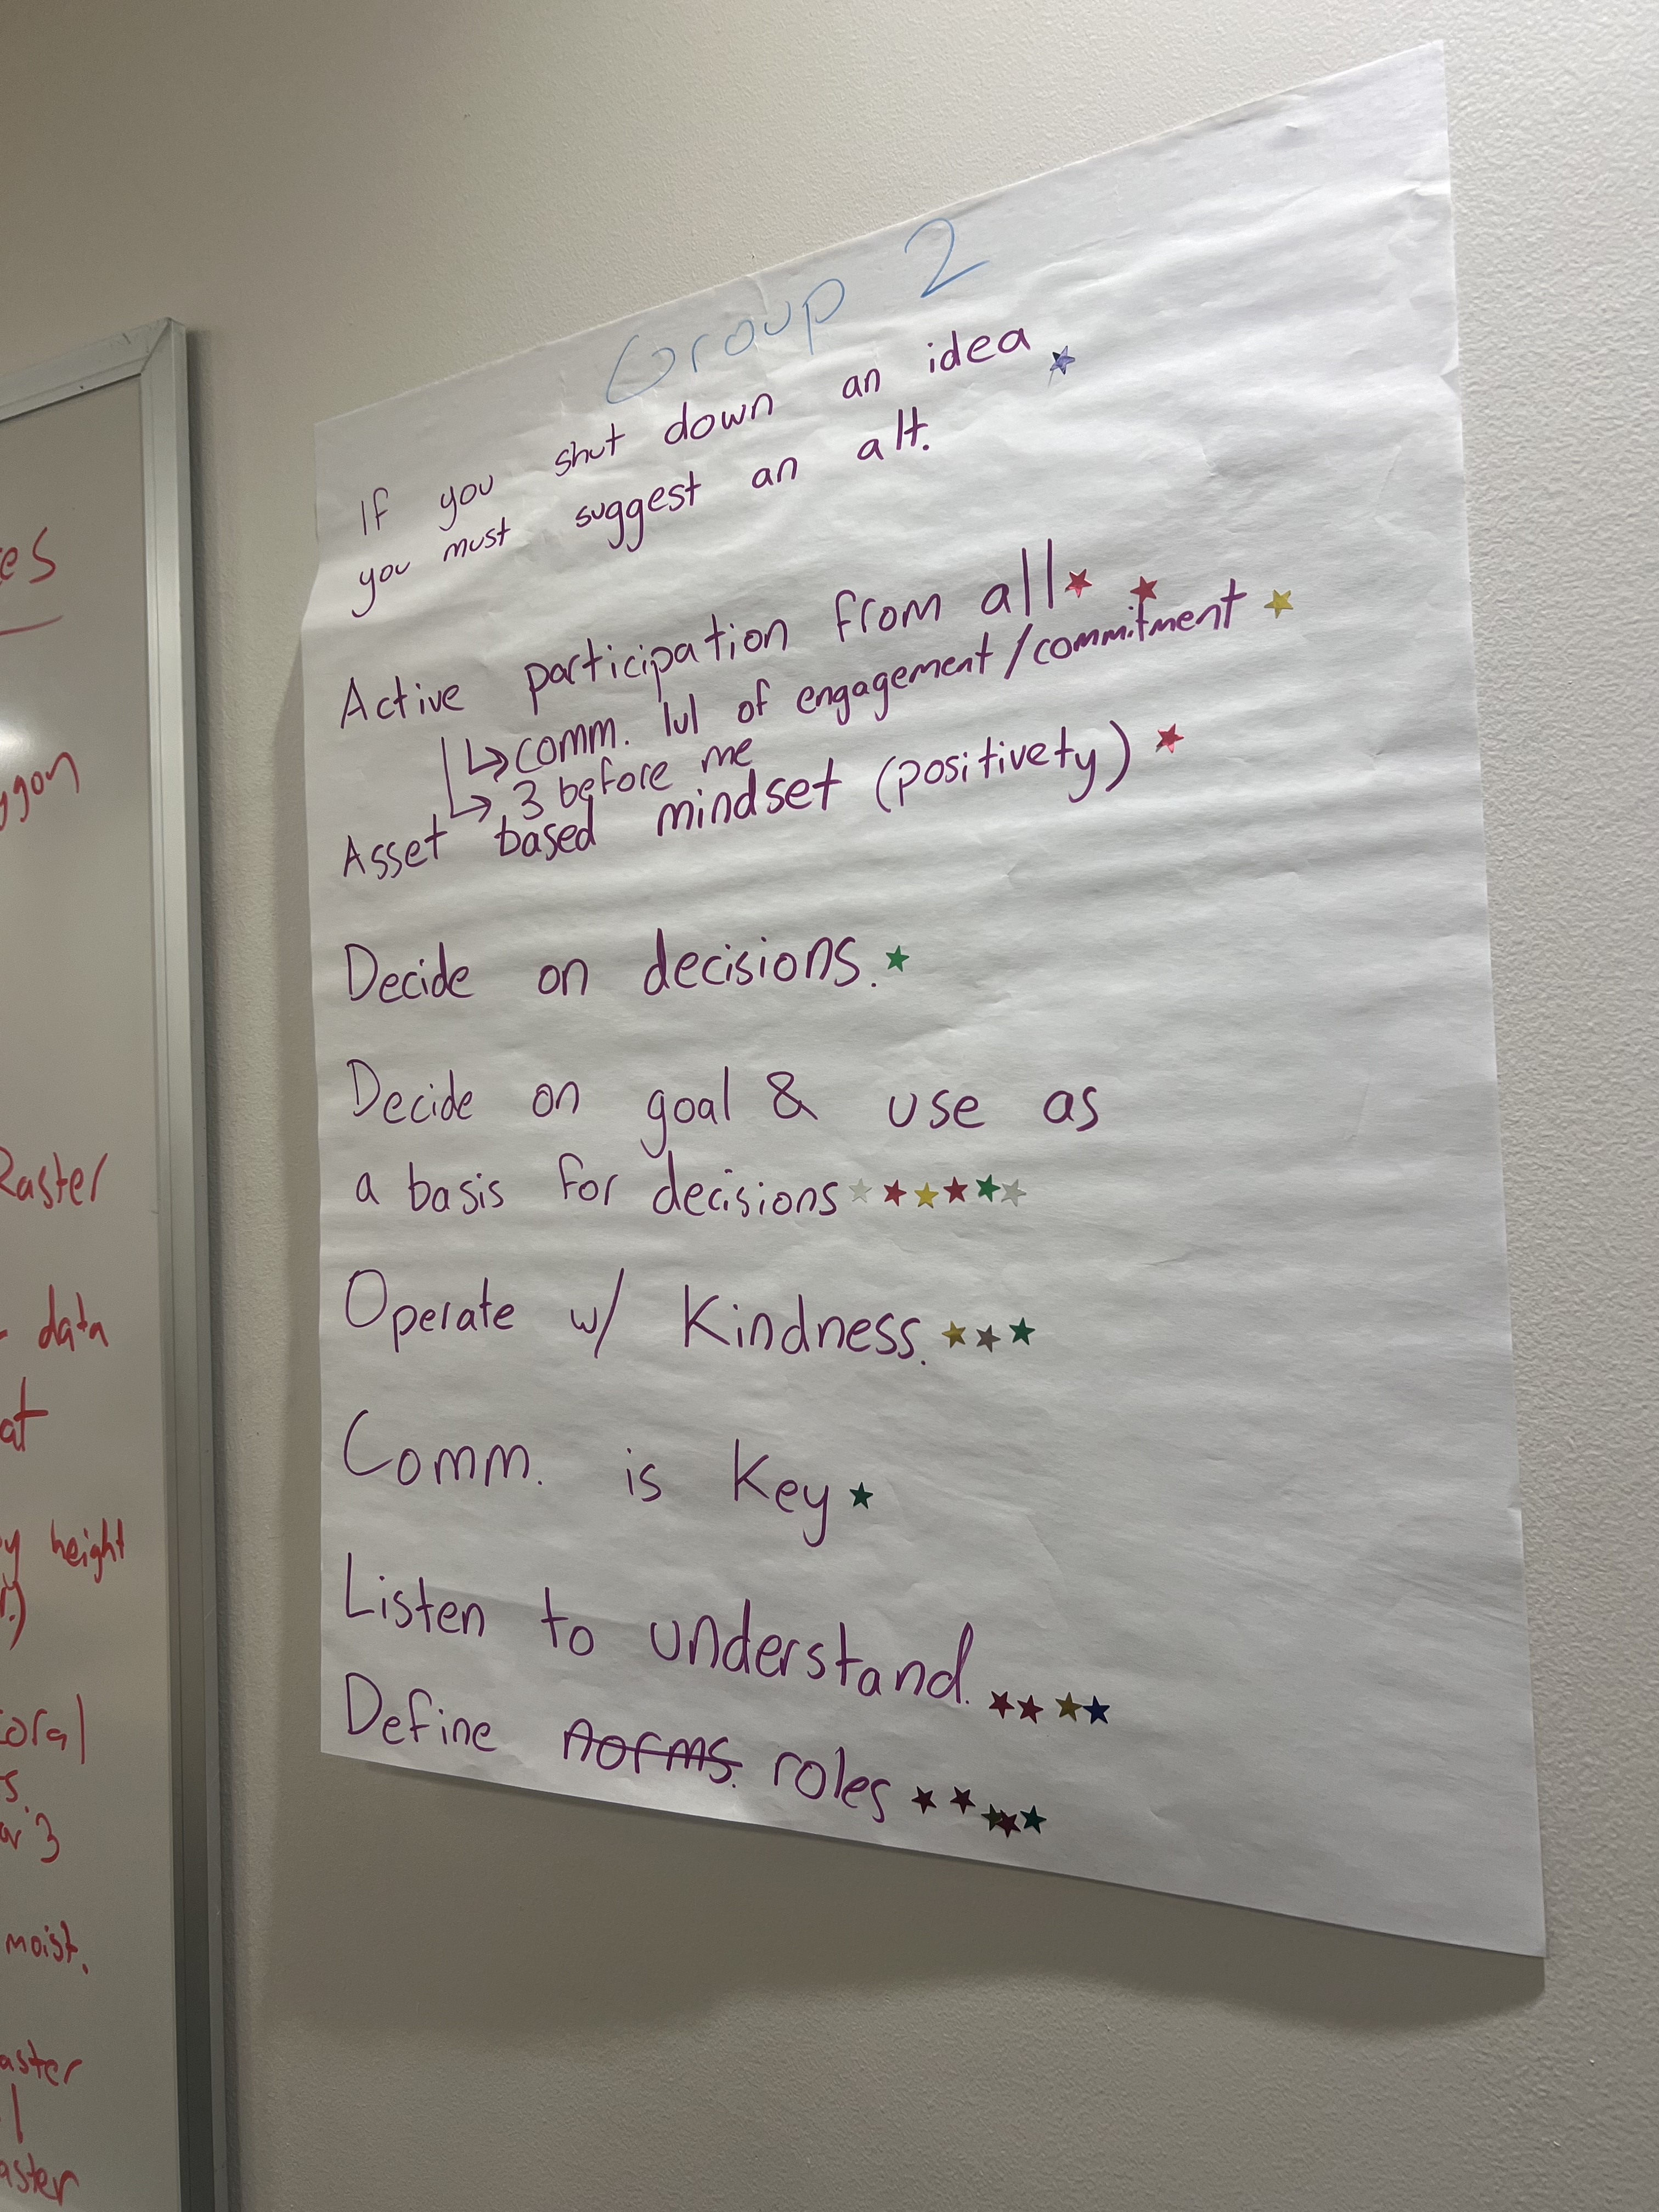 Group 2
If you shut down an idea
you must suggest an alt.
Active participation from all
comm. lvl of engagement/commitment
3 before me
Asset based mindset (positivety)
Decide on decisions.
Decide on goal & use as
a basis for decisions
Operate w/ Kindness.
Comm. is Key
Listen to understand.
Define norms. roles
Raster
data
height
3
moist.